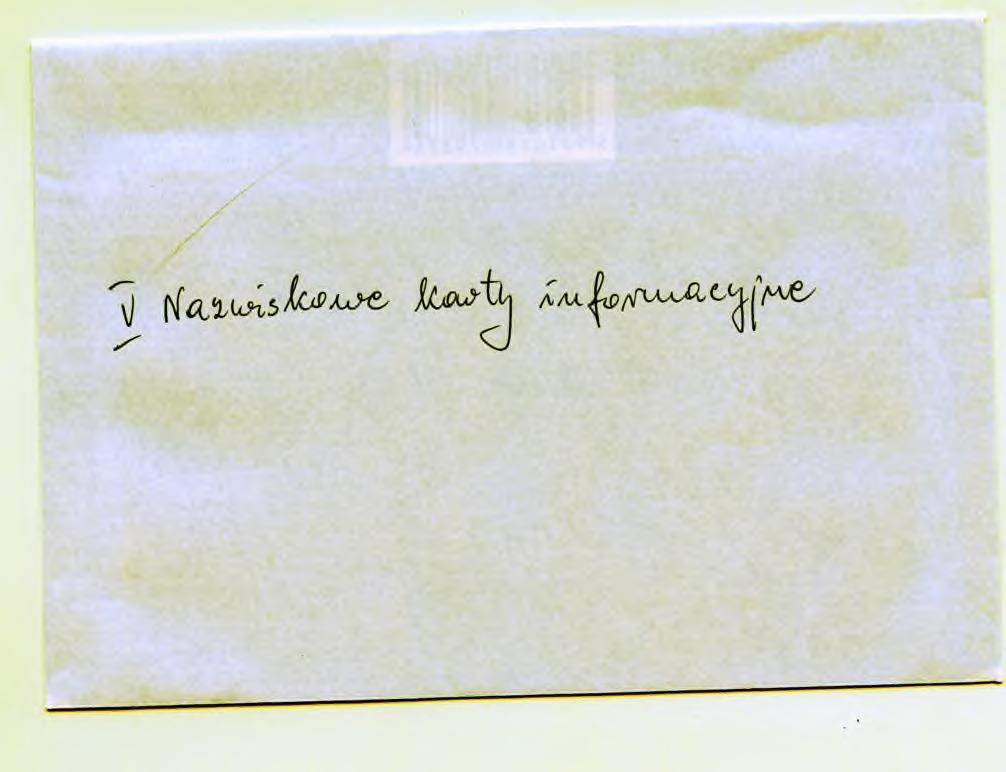 V Nazwiskowe karty informacyjne